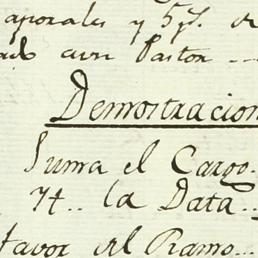 aporales y 5 ps. de
con Pastor
Demostracion
Suma el Cargo.
Yt.. la Data..
favor del Ramo...